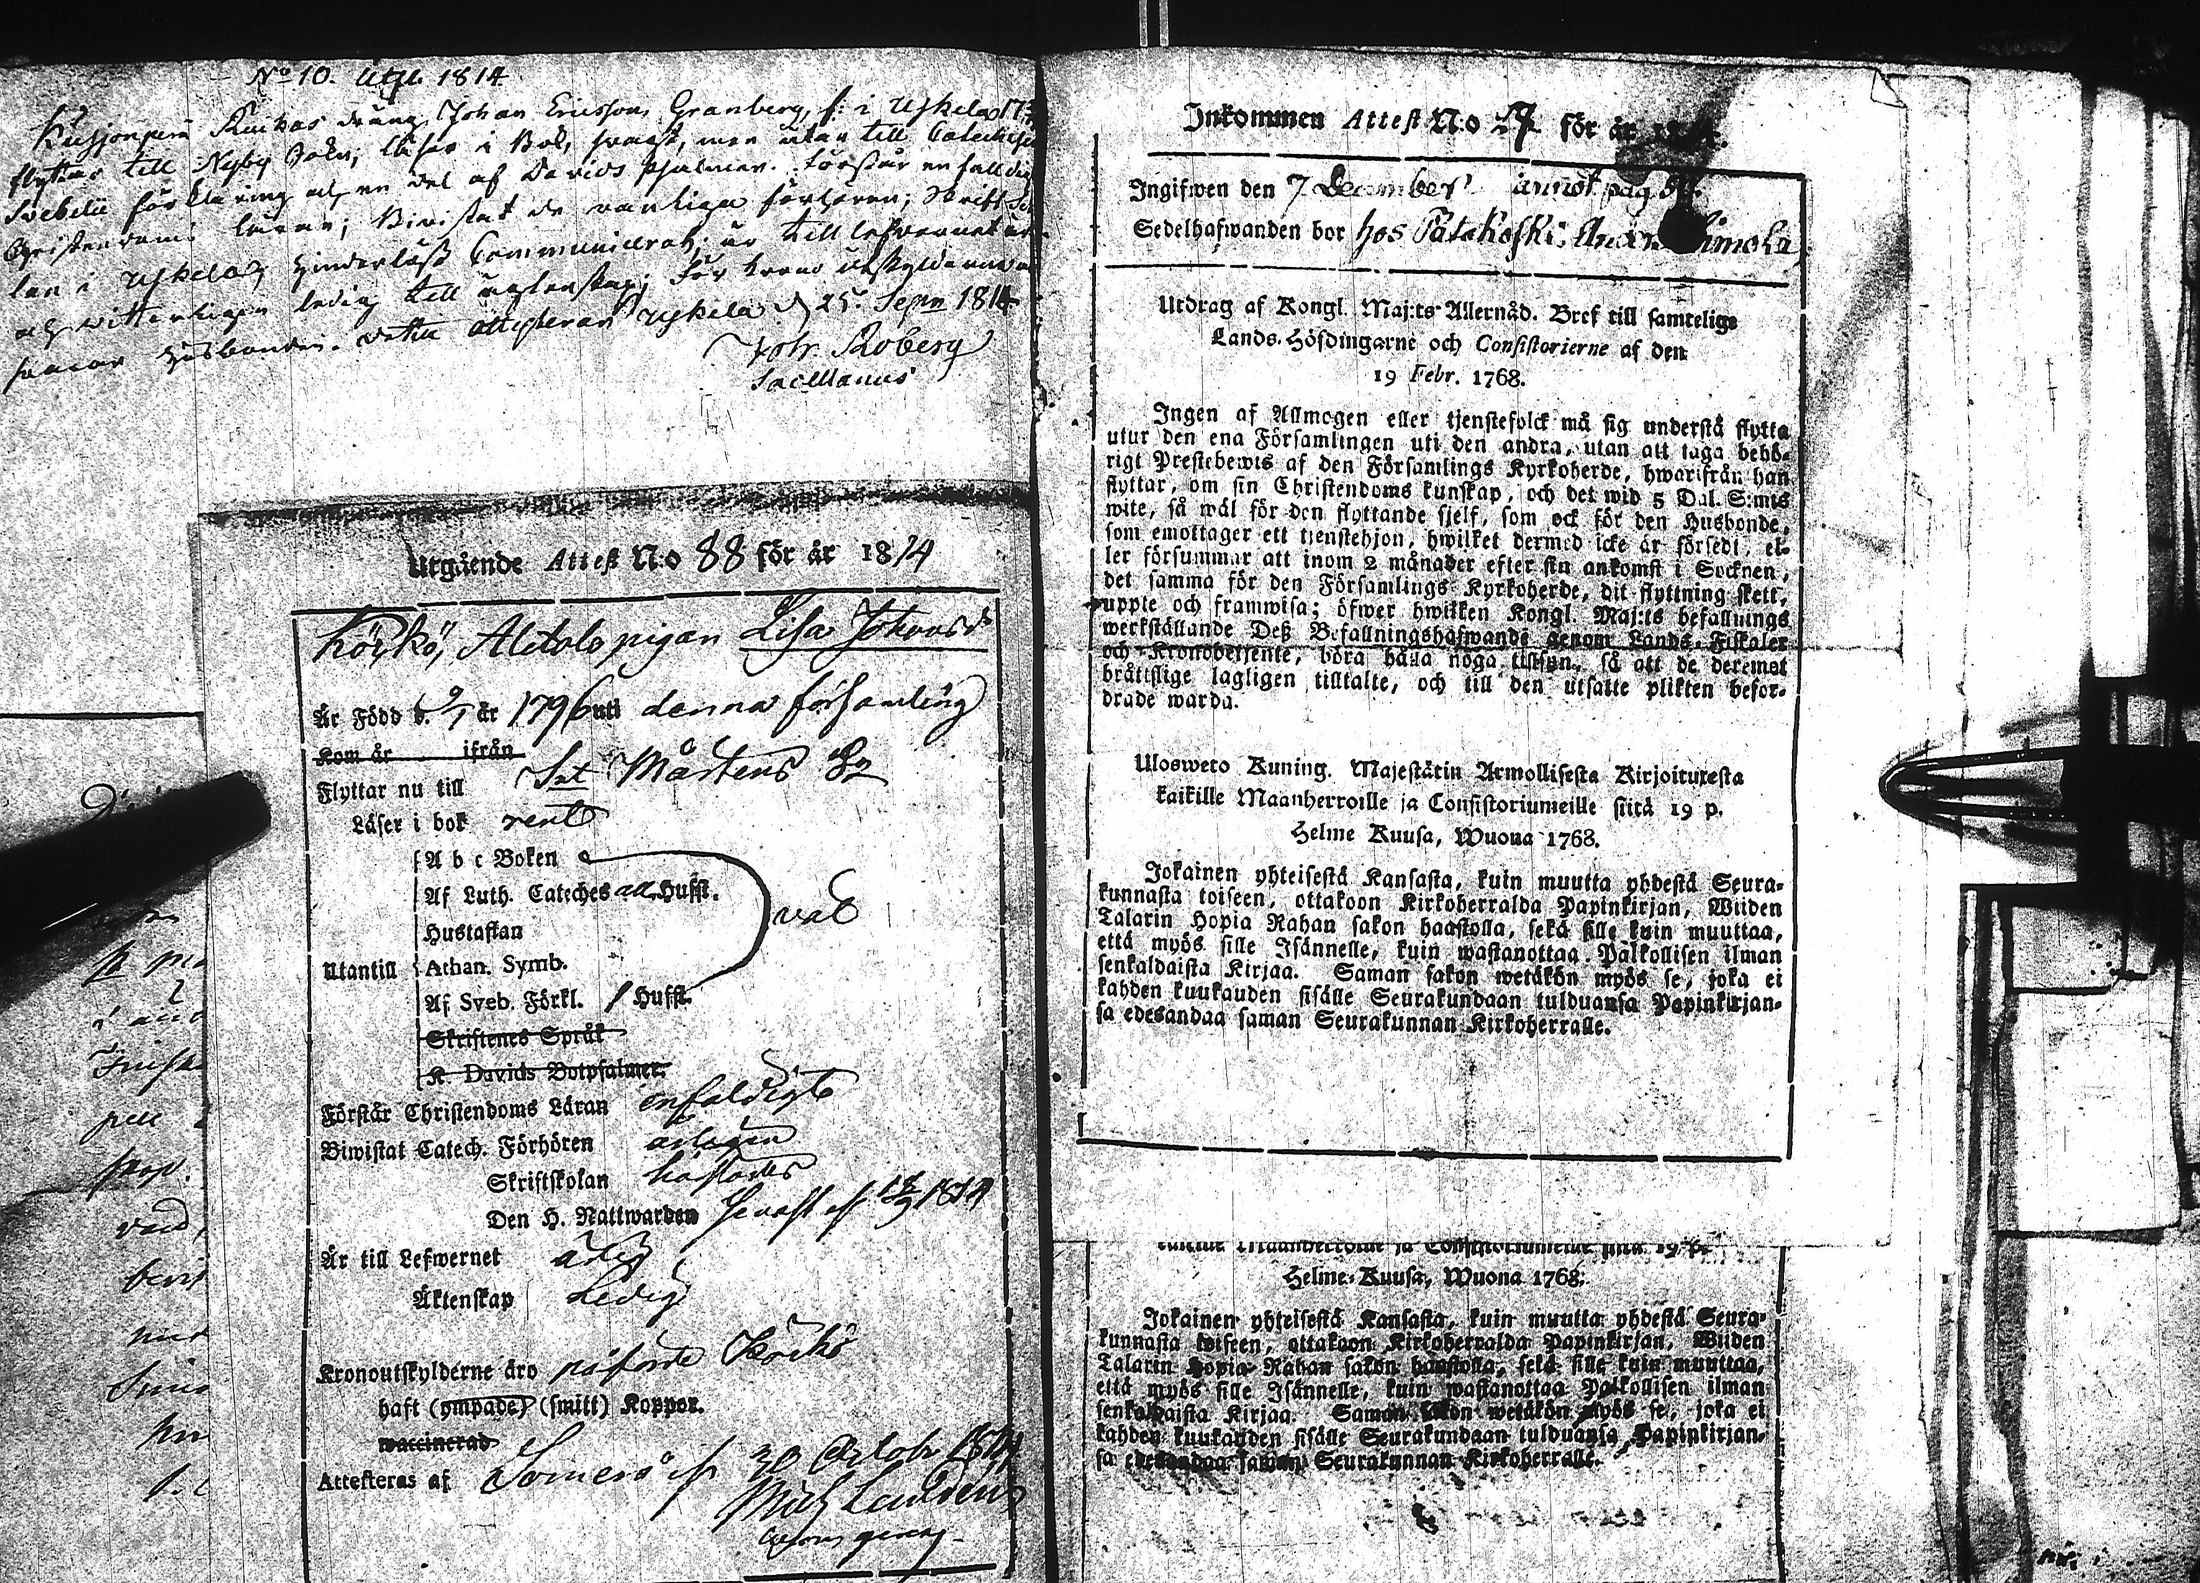 No 10. Utgt. 1814
dräng Johan Ericsson Granberg, f: i Uskela
flyttar till Nykby Sokn; läser i Bok svagt, men utan till Catechesen
Svebelii förklaring och en del af Davids Psalmer. Förstår enfaldigt
Christendoms läran; Bivistat de vanliga förhören; Skrift
lan i Uskela; hinderlöst Communicerat; är till lefvernet
och vitterligen ledig till äktenskap; För Krono utskylderna
svarar Husbonden. Detta attesterar Uskela d 25. Sepr 1814
Joh. Moberg
Sacellanus
Utgående Attest N:o 88 för år 1814
Körkö, Alitalo pigan Lisa Johansdr
Är Född d. 9/1 år 1796 uti denna församling
Kom år ifrån
Flyttar nu till Sct Mårtens
Läser i bok rent
Utantill
A b c Boken
Af Luth. Cateches all Hufst.
Hustaflan
Athan. Symb.
Af Sveb. Förkl. 1 Hufst.
väl
Skriftenes Språk
K. Davids Botpsalmer.
Förstår Christendoms Läran enfaldigt
Biwistat Catech. Förhören
Skriftskolan
Den H. Nattwarden senast 1814
Är till Lefwernet
Äktenskap Ledig
Kronoutskylderne äro påförde Körkö
haft (ympade) (smitt) Koppor.
waccinerad
Attesteras af Somero 30 Octobr 1814
Inkommen Attest N:o för år
Ingifwen den 7 December annot pag
Sedelhafwanden bor hos
Utdrag af Kongl. Maj:ts Allernåd. Bref till samtelige
Lands-Höfdingarne och Consistorierne af den
19 Febr. 1768.
Ingen af Allmogen eller tjenstefolck må sig understå flytta
utur den ena Församlingen uti den andra, utan att taga behö-
rigt Prestebewis af den Församlings Kyrkoherde, hwarifrån han
flyttar, om sin Christendoms kunskap, och det wid 5 Dal. S:mts
wite, så wäl för den flyttande sjelf, som ock för den Husbonde,
som emottager ett tjenstehjon, hwilket dermed icke är försedt, el-
ler försummar att inom 2 månader efter sin ankomst i Socknen,
det samma för den Församlings Kyrkoherde, dit flyttning skett,
uppte och framwisa; öfwer hwilken Kongl. Maj:ts befallnings
werkställande Deß Befallningshafwande genom Lands-Fiskaler
och Kronobetjente, böra hålla noga tillsyn, så att de deremot
bråttslige lagligen tilltalte, och till den utsatte plikten befor-
drade warda.
Ulosweto Kuning. Majestätin Armollisesta Kirjoituxesta
kaikille Maanherroille ja Consistoriumeille siitä 19 p.
Helme Kuusa, Wuona 1768.
Jokainen yhteisestä Kansasta, kuin muutta yhdestä Seura-
kunnasta toiseen, ottakoon Kirkoherralda Papinkirjan, Wiiden
Talarin Hopia Rahan sakon haastolla, sekä sille kuin muuttaa,
että myös sille Isännelle, kuin wastanottaa Palkollisen ilman
senkaldaista Kirjaa. Saman sakon wetäkön myös se, joka ei
kahden kuukauden sisälle Seurakundaan tulduansa Papinkirjan-
sa edesandaa saman Seurakunnan Kirkoherralle.
kaikille Maanherroille ja Consistoriumeille siitä 19 p.
Helme-Kuusa, Wuona 1768.
Jokainen yhteisestä Kansasta, kuin muutta yhdestä Seura-
kunnasta toiseen, ottakoon Kirkoherralda Papinkirjan, Wiiden
Talarin Hopia Rahan sakon haastolla, sekä sille kuin muuttaa,
että myös sille Isännelle, kuin wastanottaa Palkollisen ilman
senkaldaista Kirjaa. Saman sakon wetäkön myös se, joka ei
kahden kuukauden sisälle Seurakundaan tulduansa Papinkirjan-
sa edesandaa saman Seurakunnan Kirkoherralle.